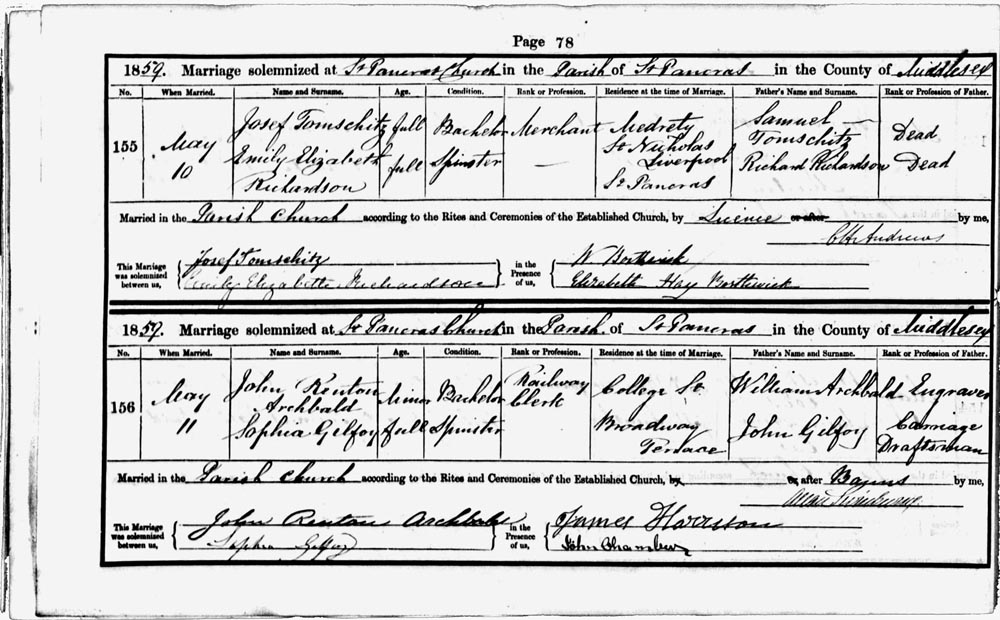 Page 78
1859. Marriage solemnized at St Pancras Church in the Parish of St Pancras in the County of Middlesex
No. When Married. Name and Surname. Age. Condition. Rank or Profession. Residence at the time of Marriage. Father's Name and Surname. Rank or Profession of Father.
155 May 10 Josef Tomschitz full Bachelor Merchant St Nicholas Liverpool Samuel Tomschitz Dead
Emily Elizabeth Richardson full Spinster — St Pancras Richard Richardson Dead
Married in the Parish Church according to the Rites and Ceremonies of the Established Church, by Licence or after by me,
Andrews
This Marriage was solemnized between us, Josef Tomschitz in the Presence of us, W Borthwick
Emily Elizabeth Richardson Elizabeth Hay Borthwick
1859. Marriage solemnized at St Pancras Church in the Parish of St Pancras in the County of Middlesex
No. When Married. Name and Surname. Age. Condition. Rank or Profession. Residence at the time of Marriage. Father's Name and Surname. Rank or Profession of Father.
156 May 11 John Renton Archbald Minor Bachelor Railway Clerk College St William Archbald Engraver
Sophia Gilfoy full Spinster Broadway Terrace John Gilfoy Carriage Draftsman
Married in the Parish Church according to the Rites and Ceremonies of the Established Church, by or after Banns by me,
This Marriage was solemnized between us, John Renton Archbald in the Presence of us, James Harrison
Sophia Gilfoy John Chambers